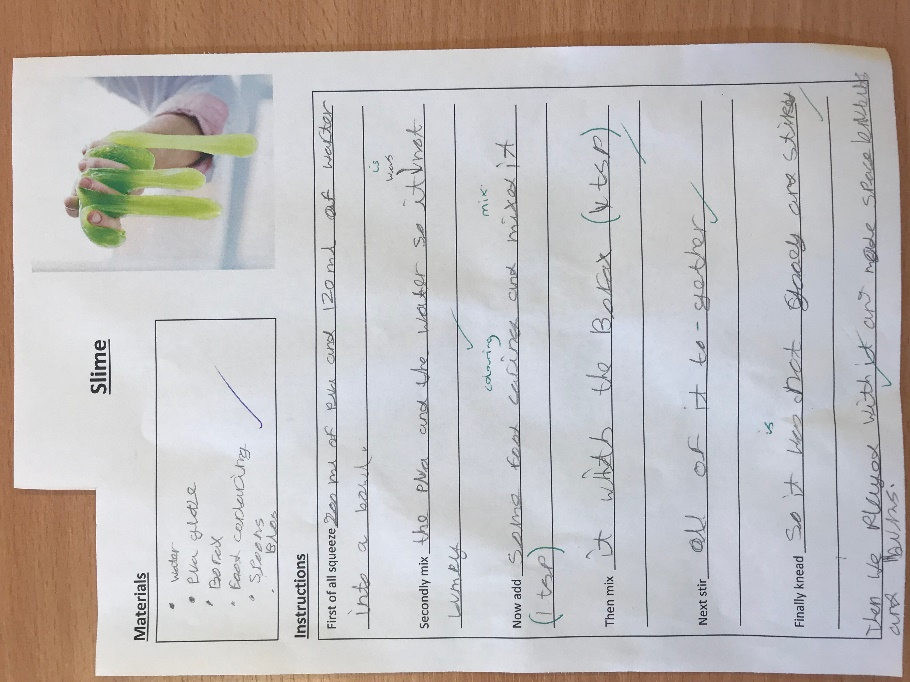 Slime
Materials
• water
• Pva glue
• Borax
• Food coolaring
• Spoons
Instructions
First of all squeeze 200 ml of pva and 120 ml of warter
into a bowl.
is
was
Secondly mix the PVA and the water so it not
lumpy
colaring mix
Now add some food coring and mixed it
(1 tsp)
Then mix it whith the Borax (½ tsp)
Next stir all of it to-gether
is
Finally knead so it was not gooey and stikey
Then we Played with it and made space
and